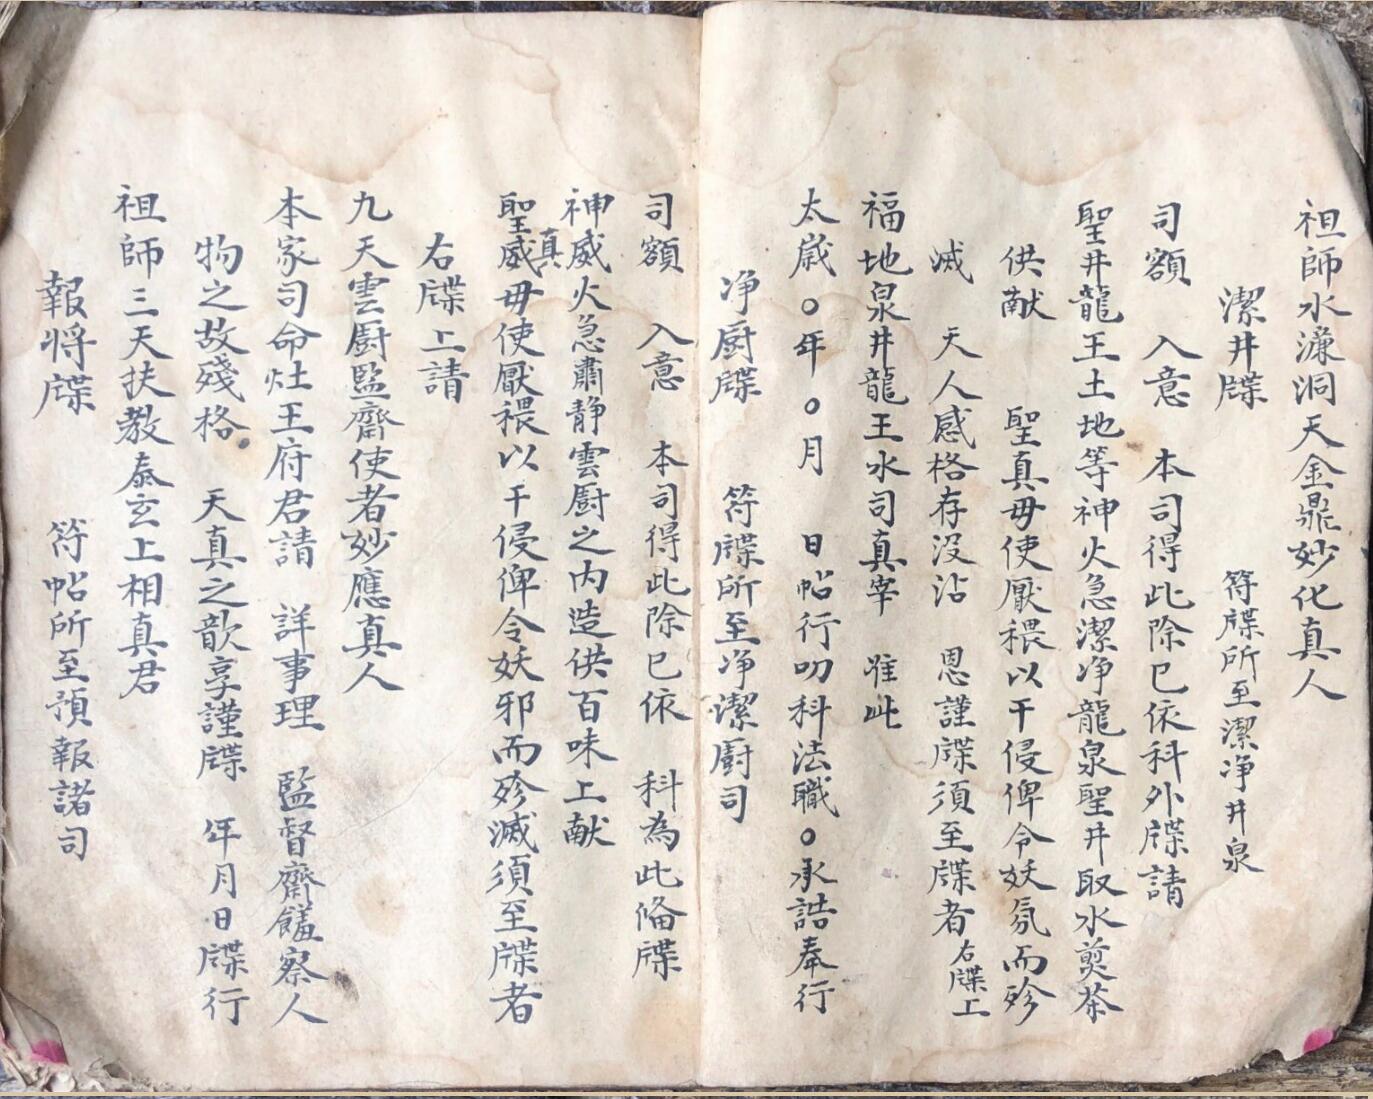 祖師水濂洞天金鼎妙化真人
潔井牒 符牒所至潔净井泉
司額 入意 本司得此除已依科外牒請
聖井龍王土地等神火急潔净龍泉聖井取水煎茶
供献 聖真毋使厭穢以干侵俾令妖氛而殄
滅 天人感格存没沾 恩謹牒須至牒者 右牒上
福地泉井龍王水司真宰 准此
太歲〇年〇月 日帖行叨科法職〇承誥奉行
净厨牒 符牒所至净潔厨司
司額 入意 本司得此除已依 科為此俻牒
神威火急肅静雲厨之内造供百味上献
聖真威毋使厭穢以干侵俾令妖邪而殄滅須至牒者
右牒上請
九天雲厨監齋使者妙應真人
本家司命灶王府君請 詳事理 監督齋饈察人
物之故殘格 天真之歆享謹牒 年月日牒行
祖師三天扶教泰玄上相真君
報将牒 符帖所至預報諸司